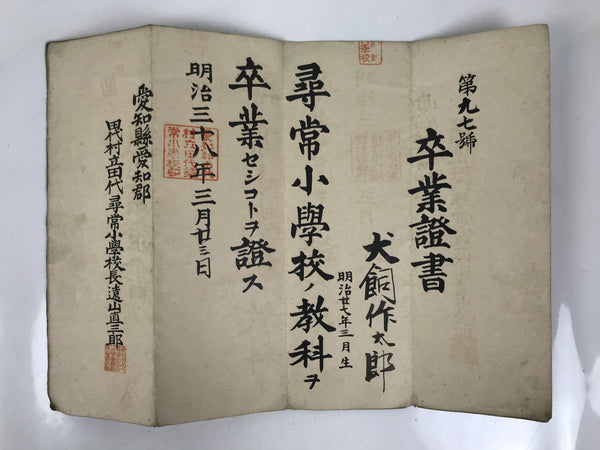 第九七號
卒業證書
犬飼作太郎
明治廿七年三月生
尋常小學校ノ教科ヲ
卒業セシコトヲ證ス
明治三十八年三月廿三日
愛知縣愛知郡
田代村立田代尋常小學校長遠山直三郎